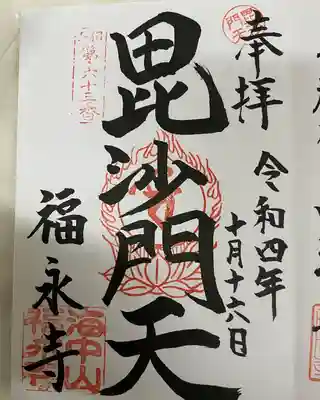 奉拝
令和四年
十月十六日
毘沙門天
福永寺
第六十三番
海中山
福永寺